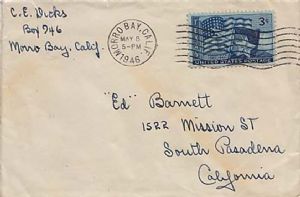 C.E. Dicks
Box 946
Morro Bay, Calif
MORRO BAY, CALIF.
MAY 8
5-PM
1946
3¢
UNITED STATES POSTAGE
"Ed" Barnett
1522 Mission ST
South Pasadena
California